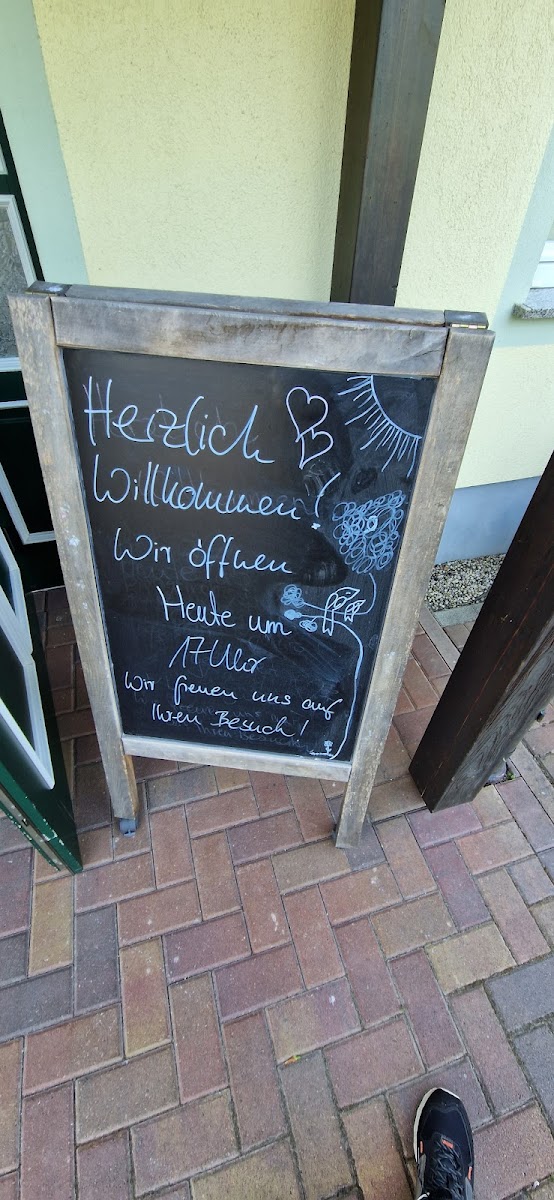 Herzlich
Willkommen!
Wir öffnen
Heute um
17 Uhr
Wir freuen uns auf
Ihren Besuch!